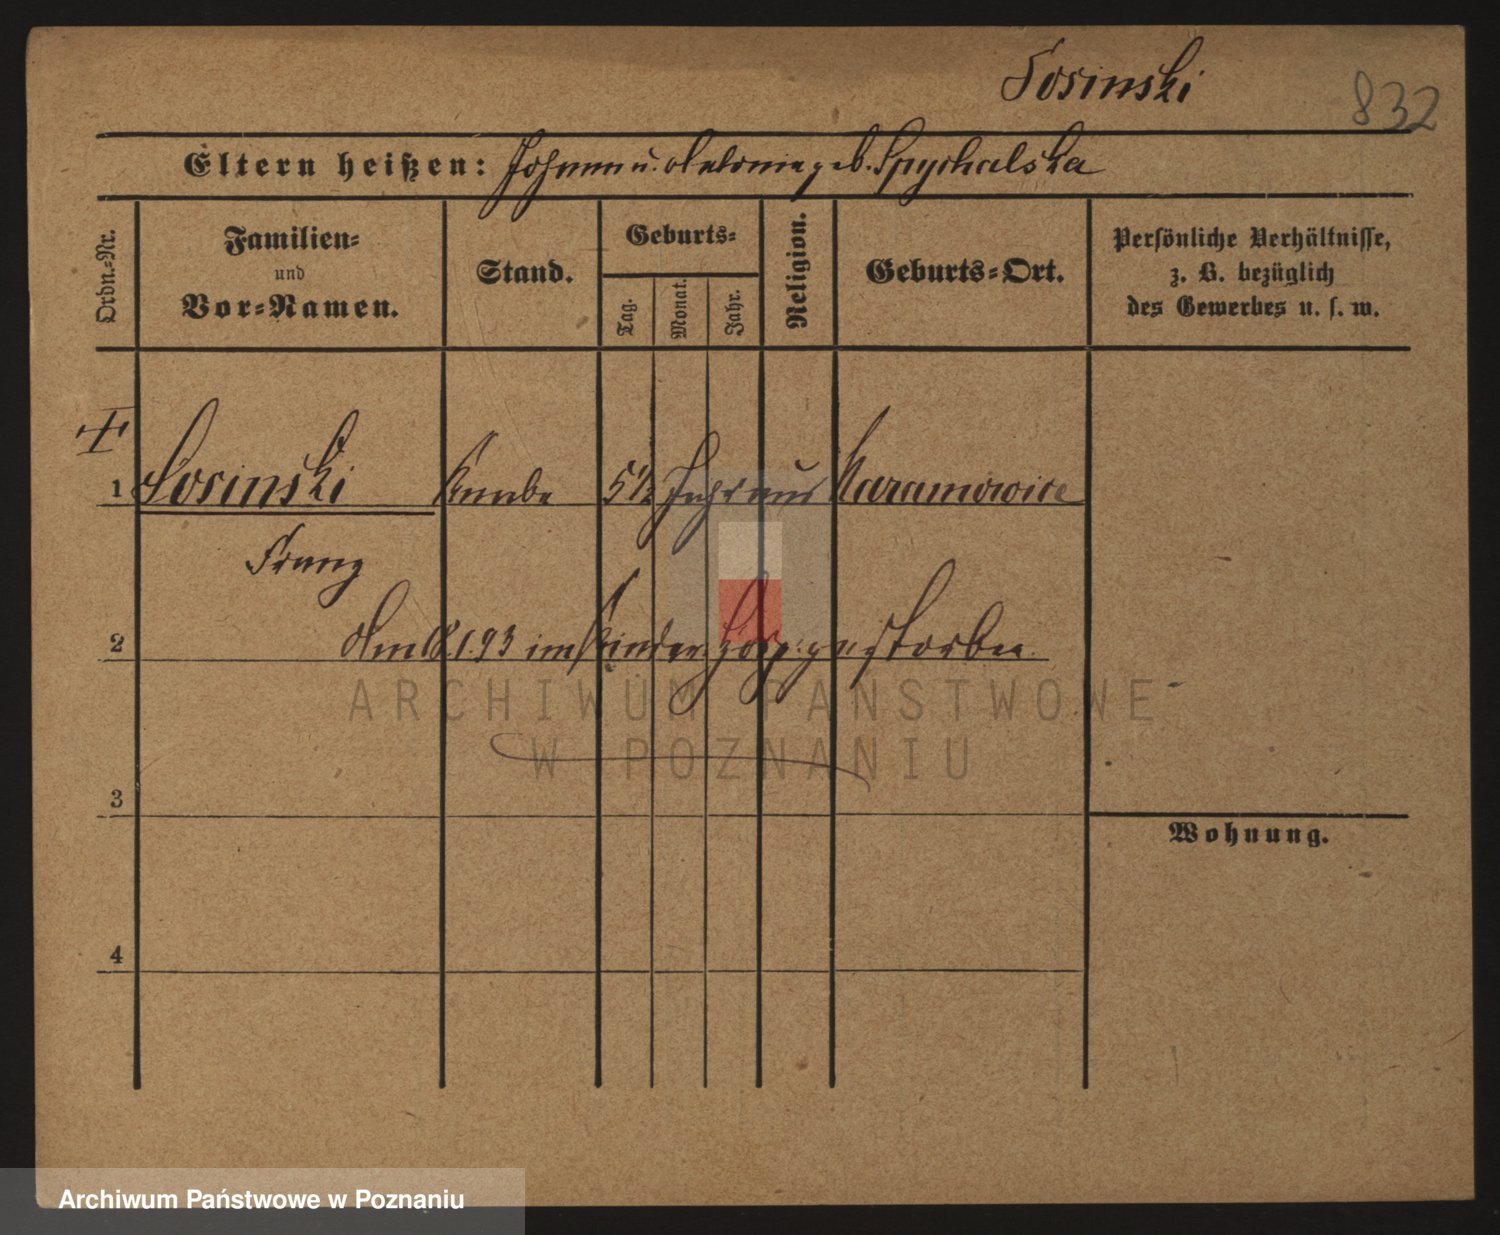 Sosinski
832
Eltern heißen: Johann u. Antonie geb. Spychalska
Ordn.-Nr.
Familien- und Vor-Namen.
Stand.
Geburts-
Tag.
Monat.
Jahr.
Religion.
Geburts-Ort.
Persönliche Verhältnisse,
z. B. bezüglich
des Gewerbes u. s. w.
1 Sosinski Knabe 5½ Jahr aus Naramowice
Franz
2 Am 18.1.93 im Kinder gestorben
3
Wohnung.
4
ARCHIWUM PAŃSTWOWE
W POZNANIU
Archiwum Państwowe w Poznaniu